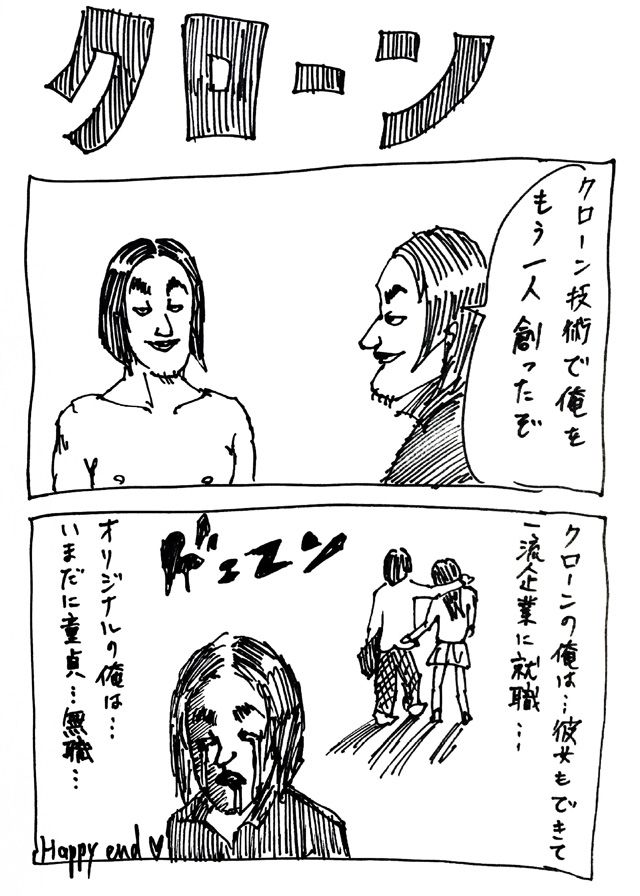 クローン
クローン技術で俺を
もう一人創ったぞ
クローンの俺は…彼女もできて
一流企業に就職…
ドュエン
オリジナルの俺は…
いまだに童貞…無職…
Happy end♥